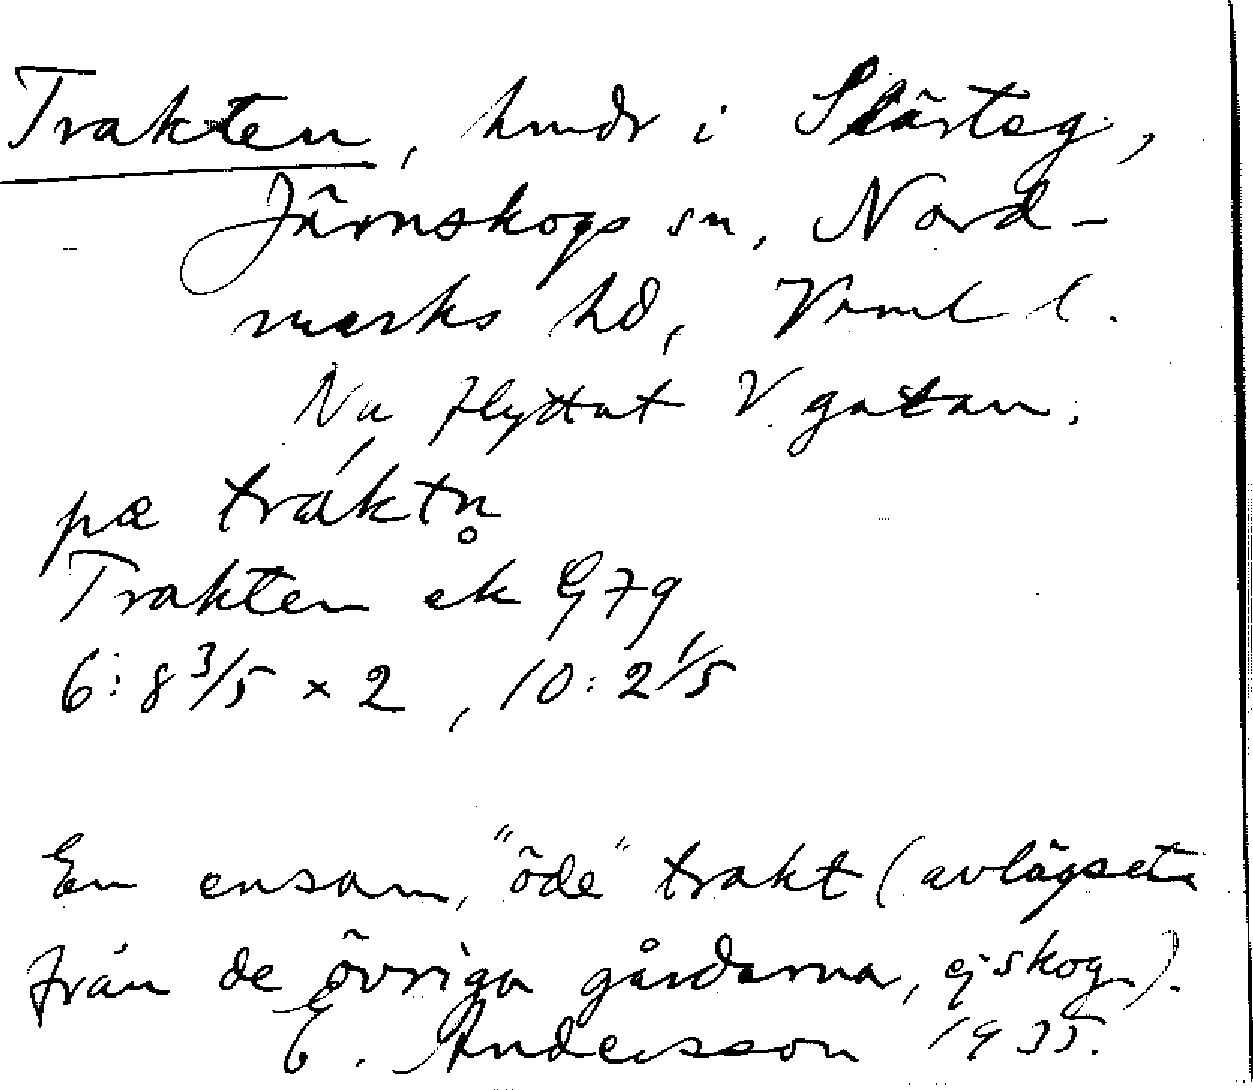 Trakten, hmdr i Slärteg,
Järnskogs sn, Nord-
marks hd, Värml l.
Nu flyttat V. gatan.
pæ tráktn̥
Trakten ek G79
6:8 3/5 × 2, 10:2 1/5
En ensam, "öde" trakt (avlägset
från de övriga gårdarna, ej skog).
E. Andersson 1935.